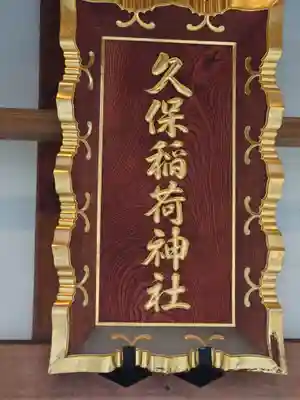 久保稲荷神社